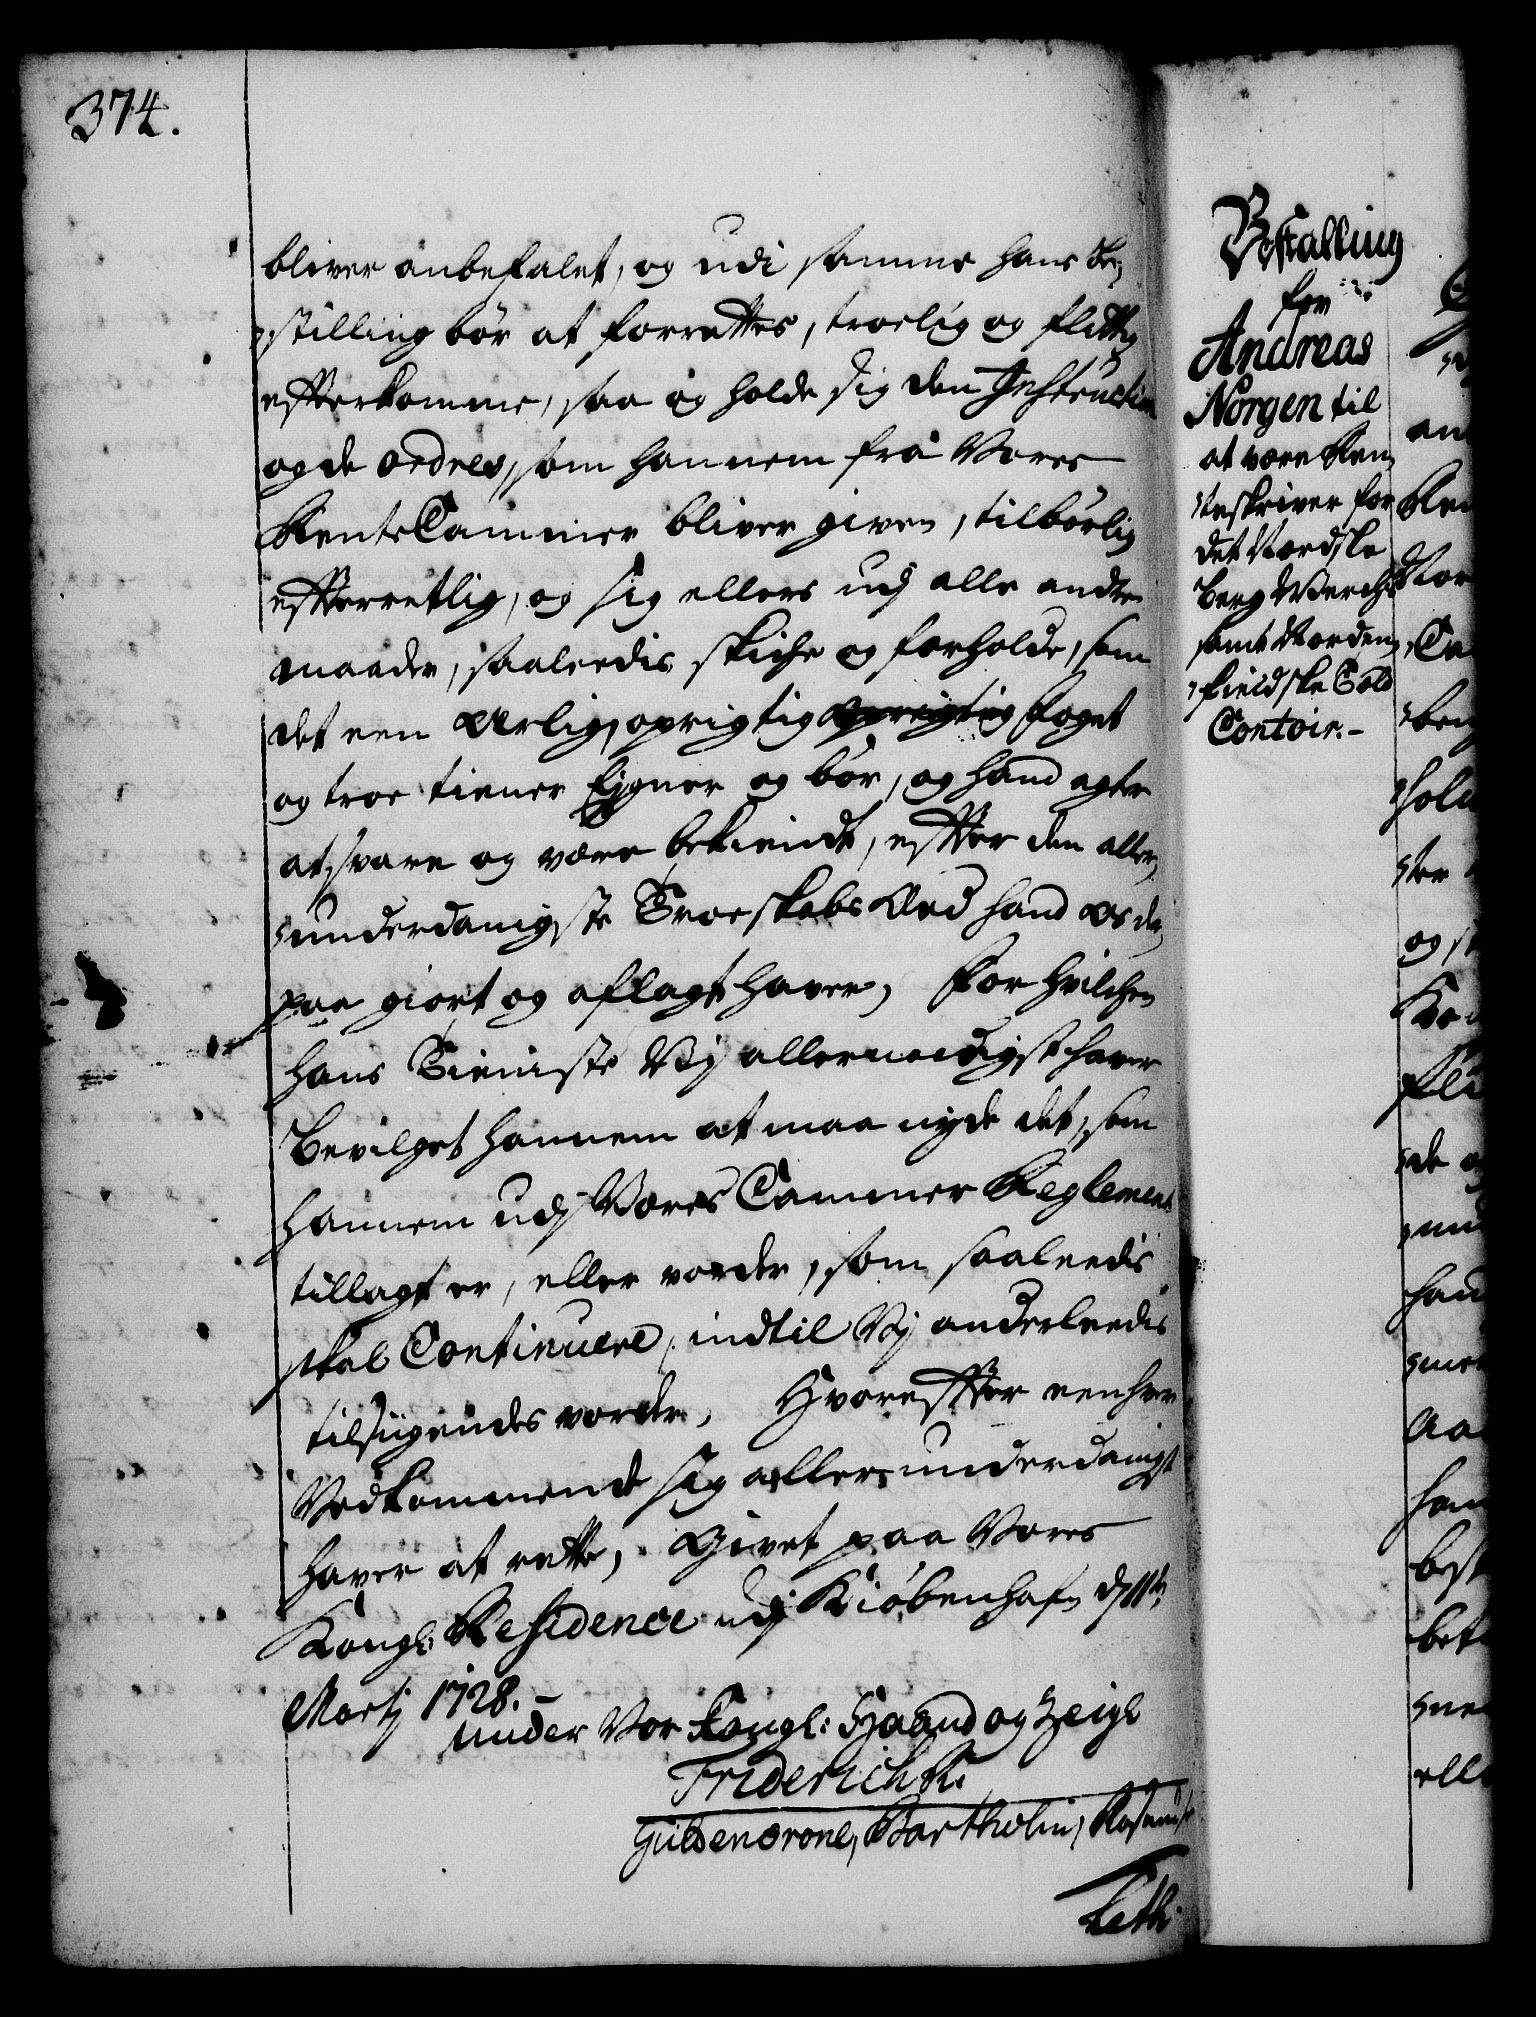 374.
bliver anbefalet, og udi samme hans Be,,
,,stilling bør at forrettes, troelig og flittig
efterkomme, saa og holde sig den Instruction
og de ordres, som hannem fra Vores
RenteCammer bliver given, tilbørlig
efterretlig, og sig ellers udj alle andre
maader, saaleedis skiche og forholde, som
det een ærlig, oprigtig oprigtig foget
og troe tiener Eigner og bør, og hand agter
at svare og være bekiendt, efter den aller,,
,,underdanigste Troeskabs Æed hand Os der,,
paa giort og aflagt haver, For hvilchen
hans Tieniste Vj allernaadigst haver
Bevilget hannem at maa nyde det, som
hannem udj Vores Cammer Reglement
tillagt er, eller vorder, som saaleedis
skal Continuere, indtil Vj anderleedis
tilsigendes vorder, Hvorefter eenhver
Vedkommende sig allerunderdanigst
haver at rette, Givet paa Vores
Kongl: Residence udj Kiøbenhafn d: 11te
Martij 1728.-
under Vor Kongl: Haand og Zeigl
Friderich R.
Güldencrone, Bartholin,
Bestalling
for
Andreas
Norgen til
at være Ren,,
,,teskriver for
det Nordske
Berg Werchs
samt Norden,,
,,fieldske Told
Contoir.-